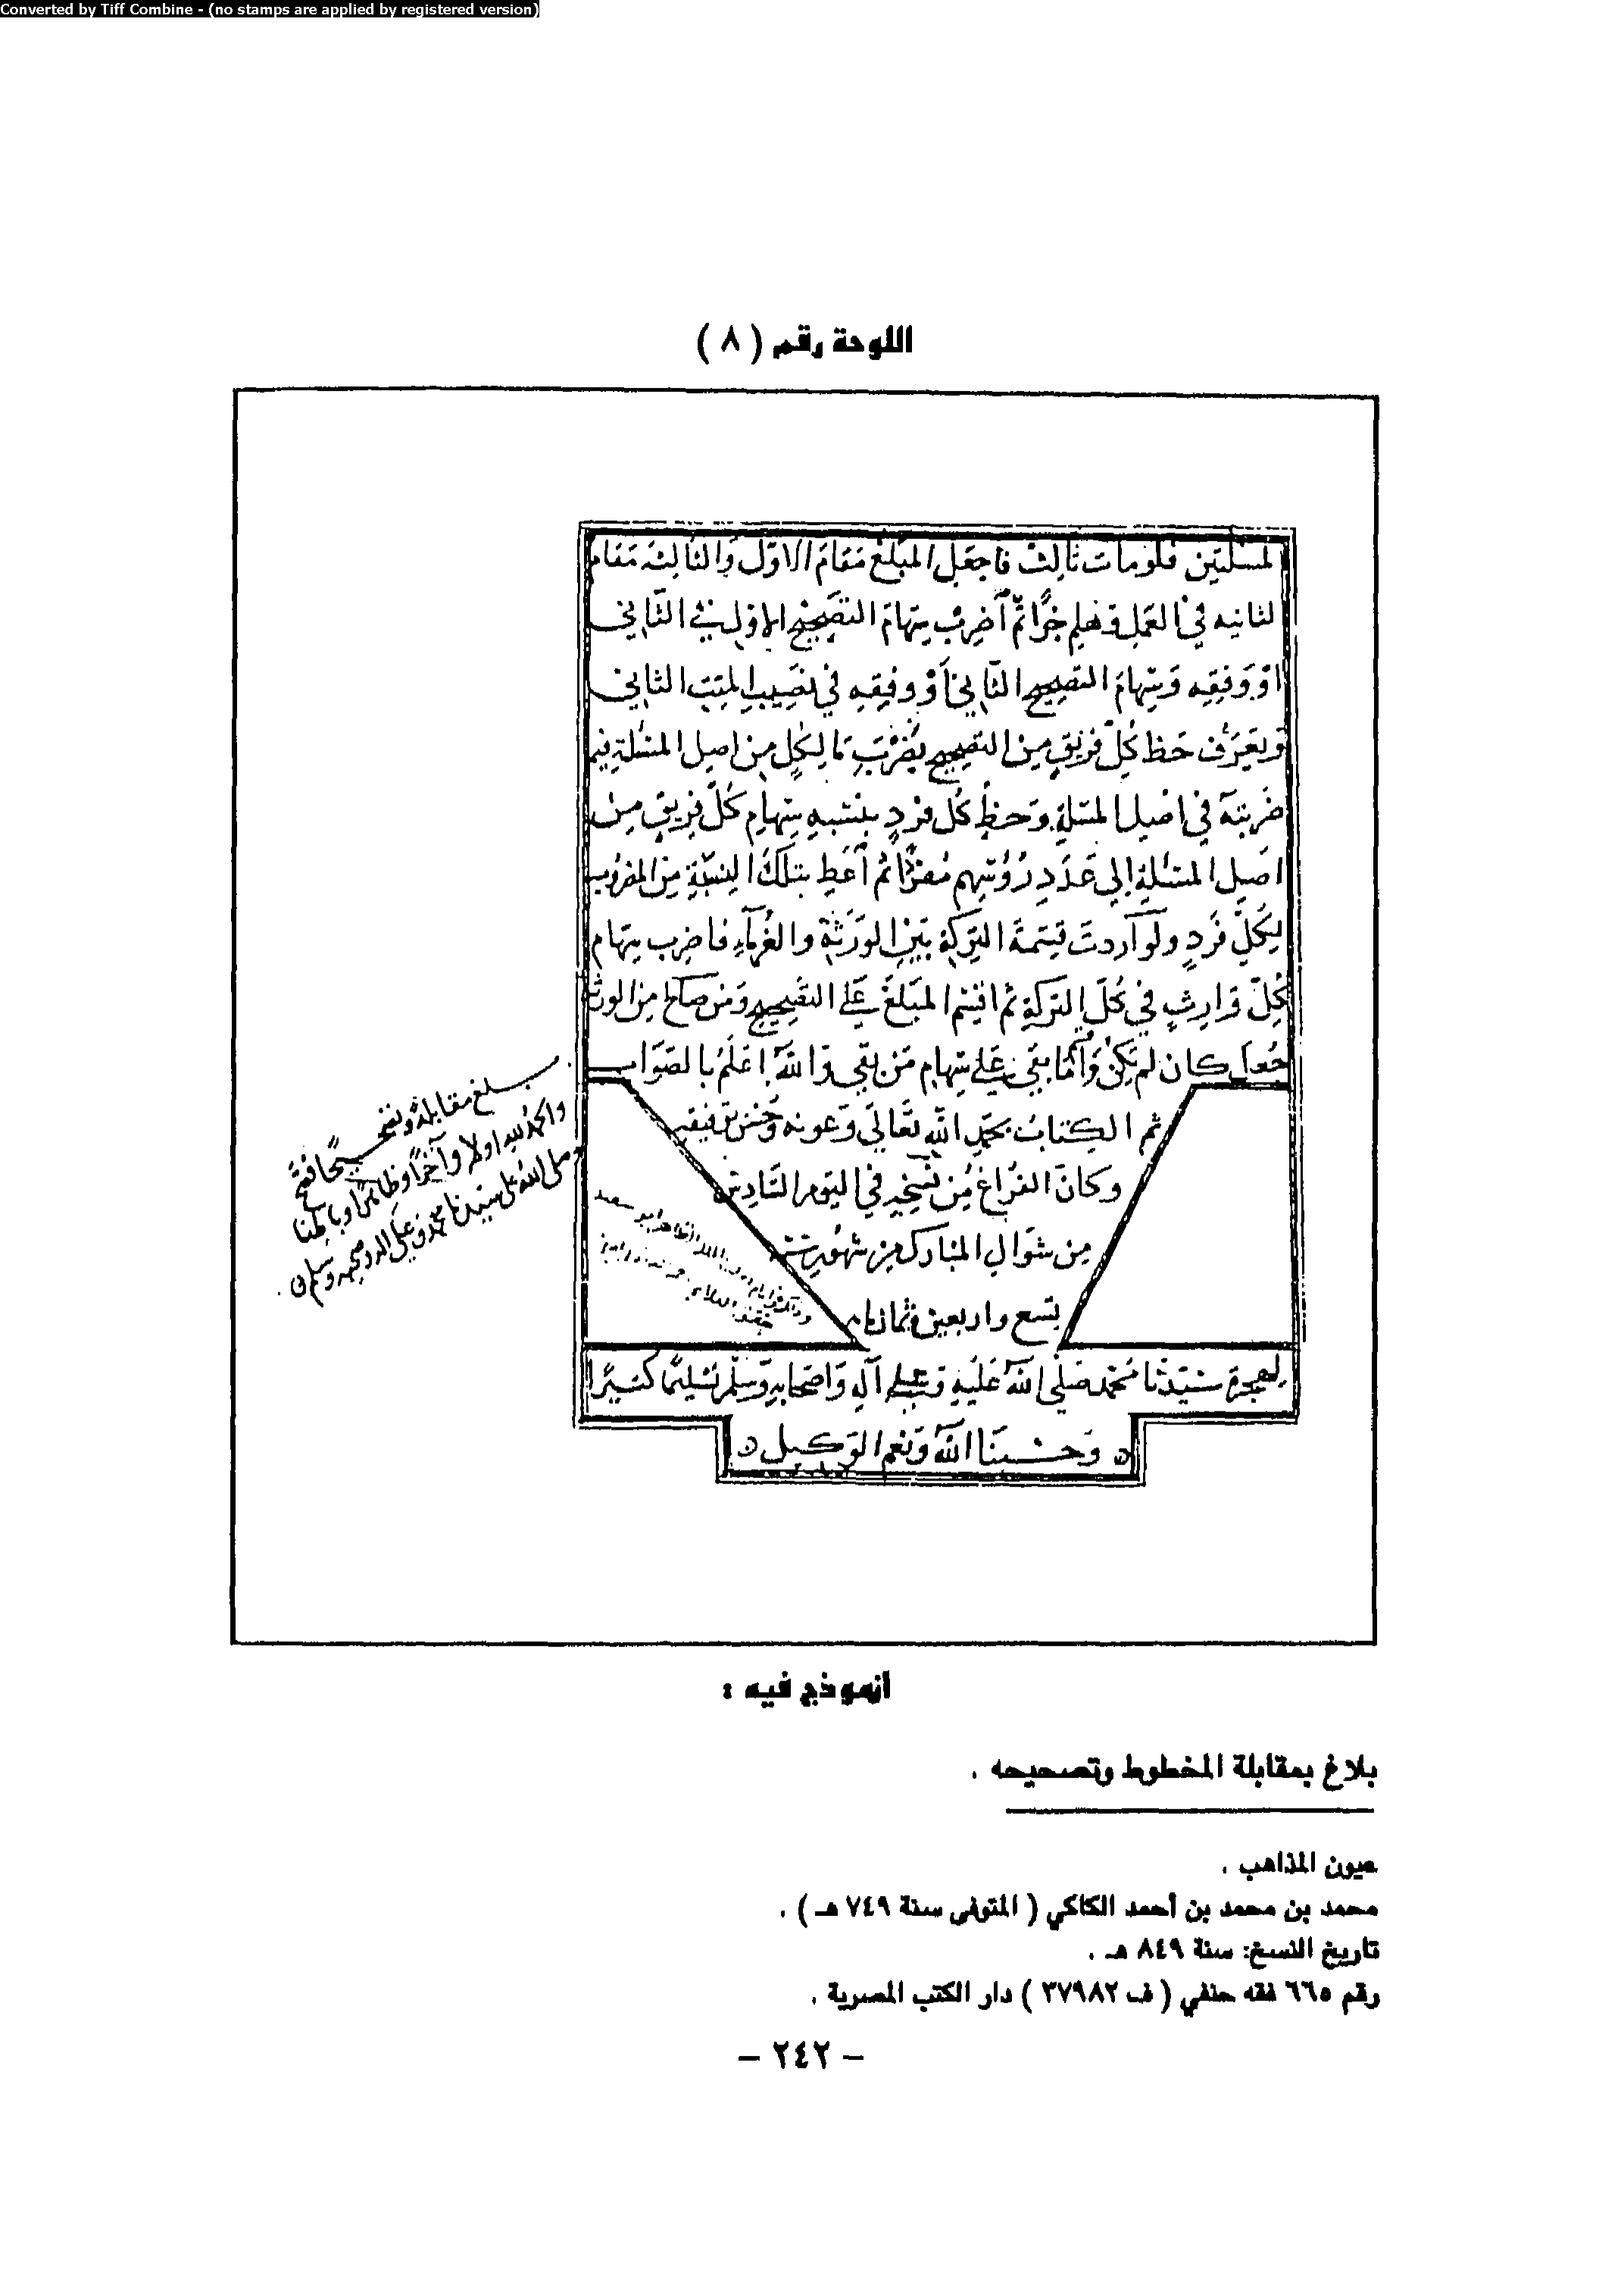 Converted by Tiff Combine - (no stamps are applied by registered version)
اللوحة رقم ( ٨ )
المسئلتين فلو مات ثالث فاجعل المبلغ مقام الاول والثالثة مقام
الثانيه في العمل وهلم جرًّا ثم اضرب سهام التصحيح الاول في الثاني
او وفقِه وسهام التصحيح الثاني أو وفقِه في نصيب الميت الثاني
ويُعرف حظ كل فريق من التصحيح بضرب ما لِكلٍ من اصل المسئلة فيما
ضربته في اصل المسئلة وحظ كل فرد بنسبه سهام كل فريق من
اصل المسئلة الى عدد رؤسهم مفردًا ثم أعط بتلك النسبة من المضروب
لكل فرد ولو أردت قسمة التركة بين الورثة والغرماء فاضرب سهام
كل وارث في كل التركة ثم اقسم المبلغ على التصحيح ومن صالح من الورثة
جُعل كان لم يكن واقسم ما بقي على سهام من بقي والله اعلم بالصواب
تم الكتاب بحمد الله تعالى وعونه وحسن توفيقه
وكان الفراغ من نسخه في اليوم السادس
من شوال المبارك من شهور سنة
تسع واربعين وثمانمايه
لهجرة سيدنا محمد صلى الله عليه وعلى آله واصحابه وسلم تسليمًا كثيرًا
وحسبنا الله ونعم الوكيل
بلغ مقابلة
والحمد لله اولا وآخرًا وظاهرًا وباطنا
وصلى الله على سيدنا محمد وعلى اله وصحبه وسلم
أنموذج فيه :
بلاغ بمقابلة المخطوط وتصحيحه .
عيون المذاهب .
محمد بن محمد بن أحمد الكاكي ( المتوفى سنة ٧٤٩ هـ ) .
تاريخ النسخ: سنة ٨٤٩ هـ .
رقم ٦٦٥ فقه حنفي ( ف ٣٧٩٨٢ ) دار الكتب المصرية .
– ٢٤٢ –